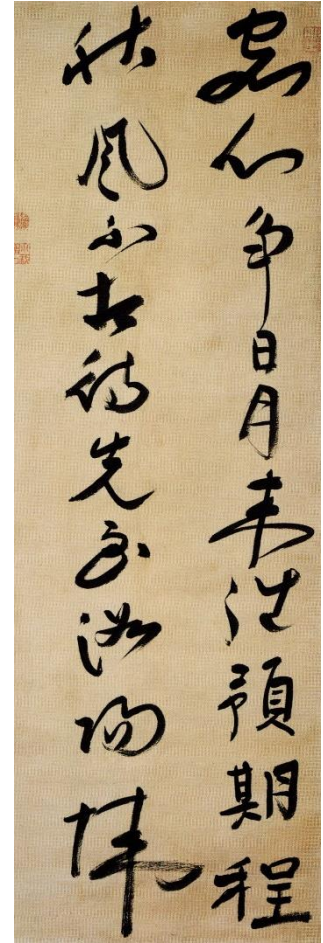 客心爭日月來往預期程
秋風不相待先至洛陽城